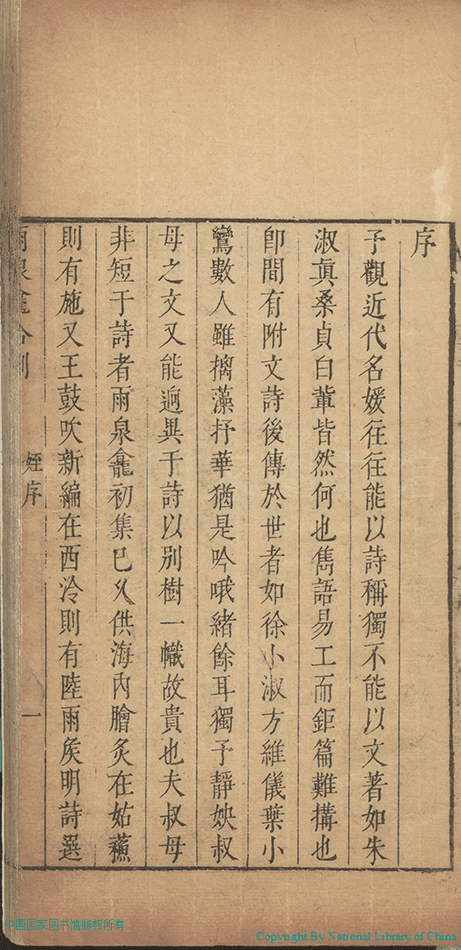 序
予觀近代名媛往往能以詩稱獨不能以文著如朱
淑眞桑貞白軰皆然何也雋語易工而鉅篇難搆也
卽間有附文詩後傳於世者如徐小淑方維儀葉小
鸞數人雖摛藻抒華猶是吟哦緒餘耳獨予靜姎叔
母之文又能逈異于詩以别樹一幟故貴也夫叔母
非短于詩者雨泉龕初集已久供海內膾炙在姑蘓
則有施又王鼓吹新編在西泠則有陸雨矦明詩選
雨泉龕合刻
姪序
一
中国国家图书馆版权所有
Copyright By National Library of China